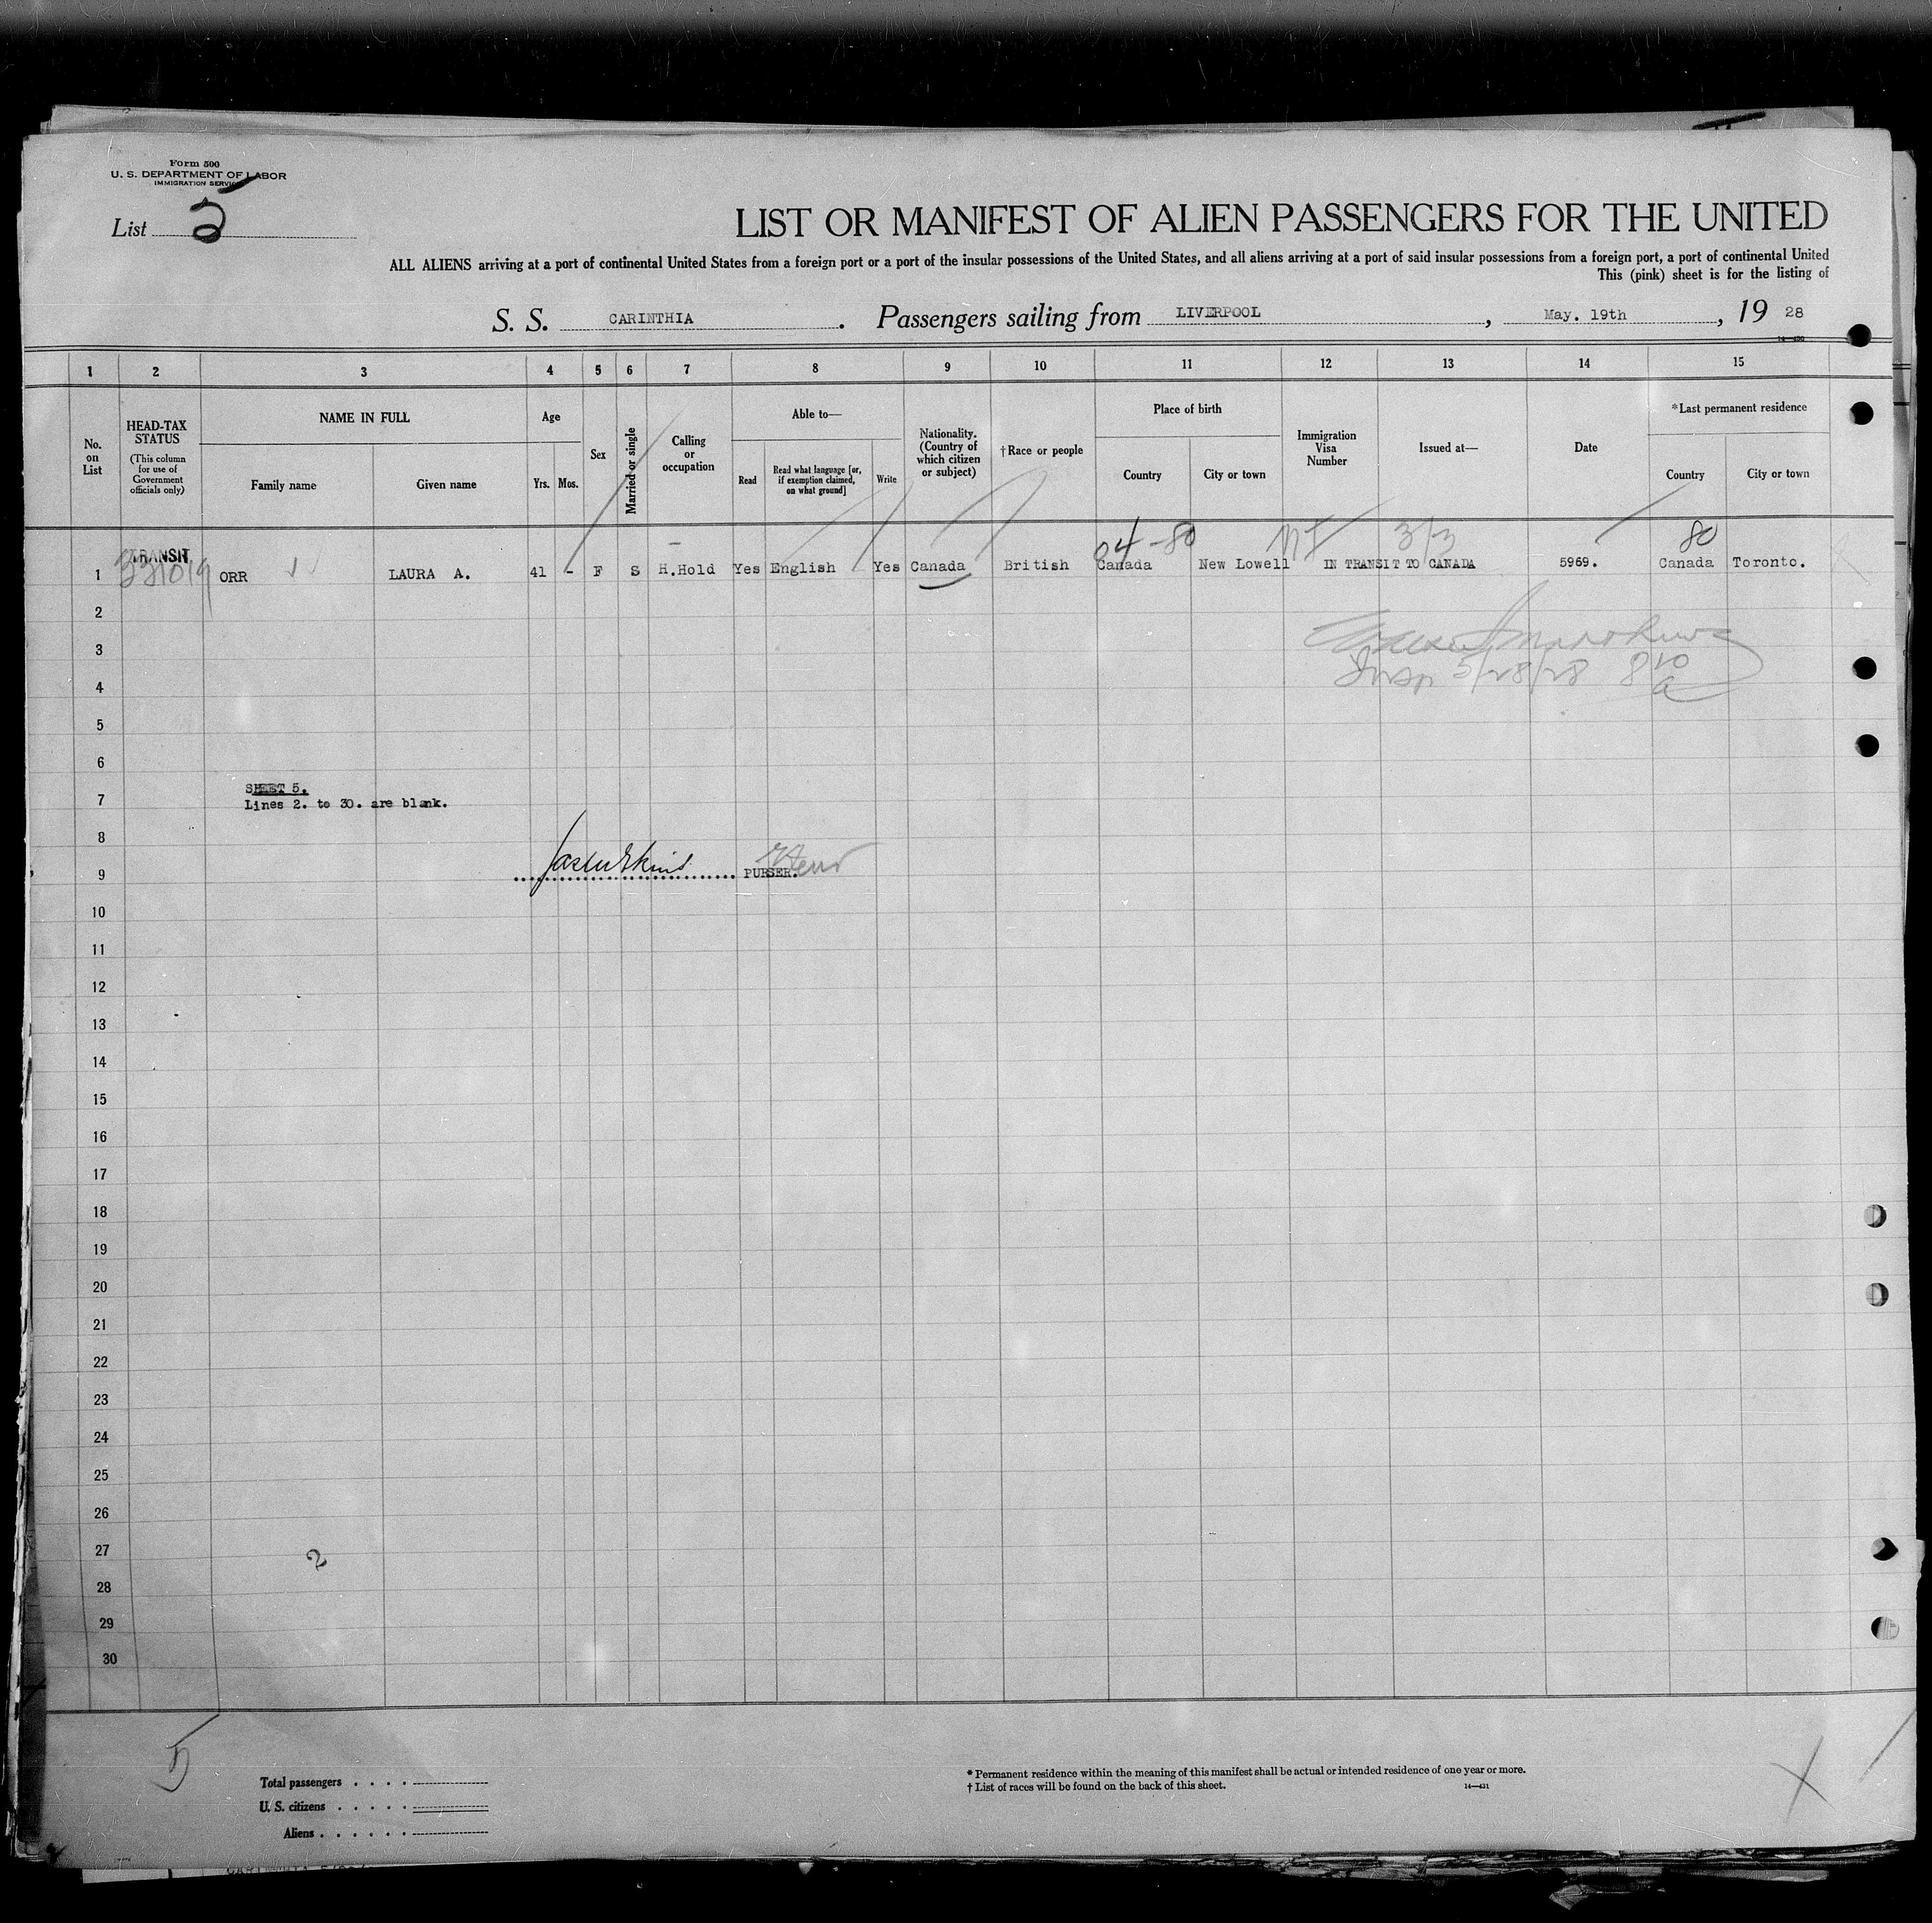 Form 500
U. S. DEPARTMENT OF LABOR
IMMIGRATION SERVICE
List 2
LIST OR MANIFEST OF ALIEN PASSENGERS FOR THE UNITED
ALL ALIENS arriving at a port of continental United States from a foreign port or a port of the insular possessions of the United States, and all aliens arriving at a port of said insular possessions from a foreign port, a port of continental United
This (pink) sheet is for the listing of
S. S. CARINTHIA. Passengers sailing from LIVERPOOL, May. 19th, 19 28
14—430
1 2 3 4 5 6 7 8 9 10 11 12 13 14 15
No. on List
HEAD-TAX STATUS
(This column for use of Government officials only)
NAME IN FULL
Family name
Given name
Age
Yrs. Mos.
Sex
Married or single
Calling or occupation
Able to—
Read
Read what language [or, if exemption claimed, on what ground]
Write
Nationality. (Country of which citizen or subject)
†Race or people
Place of birth
Country
City or town
Immigration Visa Number
Issued at—
Date
*Last permanent residence
Country
City or town
04-80 3/3 80
TRANSIT
1 ORR LAURA A. 41 - F S H.Hold Yes English Yes Canada British Canada New Lowell IN TRANSIT TO CANADA 5969. Canada Toronto.
2
3
4 Insp 5/28/28 8 10 a
5
6
SHEET 5.
7 Lines 2. to 30. are blank.
8
9 PURSER.
10
11
12
13
14
15
16
17
18
19
20
21
22
23
24
25
26
27 2
28
29
30
5 X
Total passengers . . . .
U. S. citizens . . . . .
Aliens . . . . . .
* Permanent residence within the meaning of this manifest shall be actual or intended residence of one year or more.
† List of races will be found on the back of this sheet. 14—431